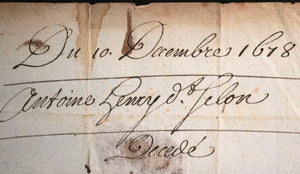 Du 10. Decembre 1678
Antoine Henry d.t Selon
Decedé